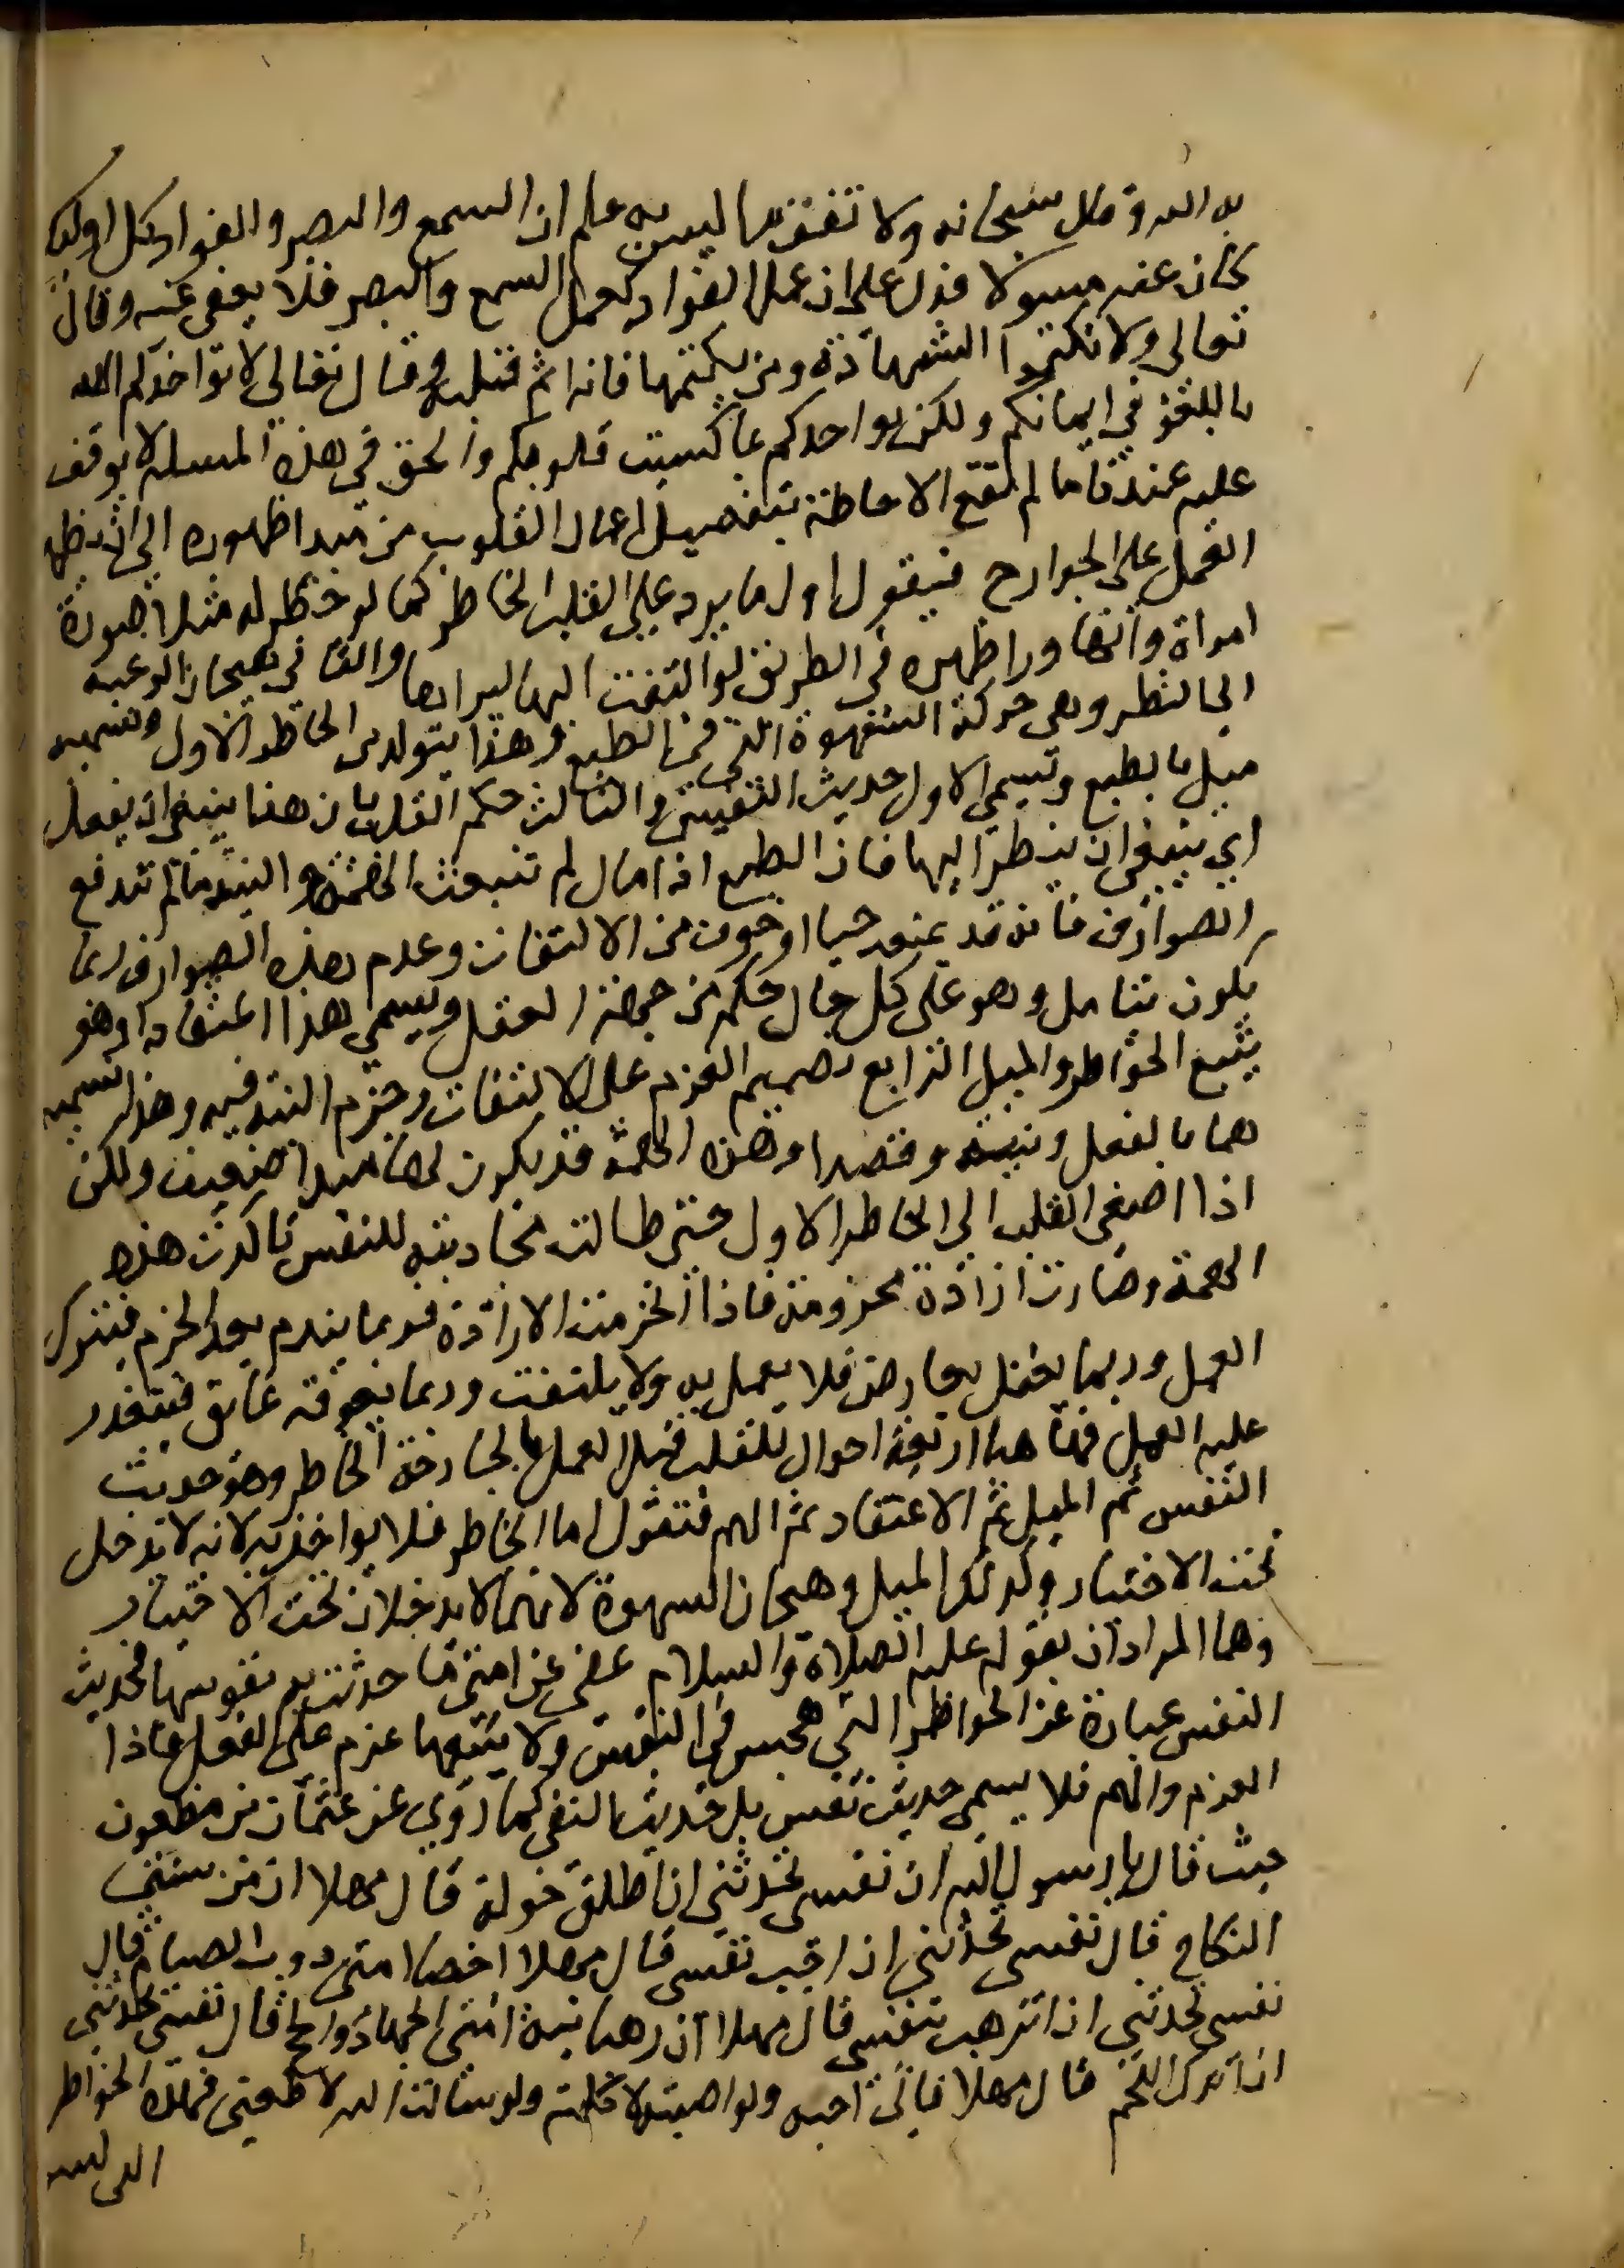 به الله وقال سبحانه ولا تقف ما ليس لك به علم ان السمع والبصر والفواد كل اولئك
كان عنه مسولا فدل على ان عمل الفواد كعمل السمع والبصر فلا يعفى عنه وقال
تعالى ولا تكتموا الشهادة ومن يكتمها فانه اثم قلبه وقال تعالى لا يواخذكم الله
باللغو في ايمانكم ولكن يواخذكم بما كسبت قلوبكم والحق في هذه المسله لا يوقف
عليه عندنا ما لم تقع الاحاطة بتفصيل اعمال القلوب من مبدا ظهوره الى ان يظهر
العمل على الجوارح فيقول اول ما يرد على القلب الخاطر كما لو خطر له مثلا صورة
امراة وانها ورا ظهره في الطريق لو التفت اليها ليراها والثاني هيجان الرغبه
الى النظر وهي حركة الشهوة التي في الطبع وهذا يتولد من الخاطر الاول ونسميه
ميل بالطبع ويسمى الاول حديث النفس والثالث حكم القلب بان هذا ينبغي ان يفعل
اي ينبغي ان ينظر اليها فان الطبع اذا مال لم تنبعث الهمة والنية ما لم تندفع
الصوارف فانه قد يمنعه حيا او خوف من الالتفات وعدم هذه الصوارف ربما
يكون بتامل وهو على كل حال حكم من جهة العقل ويسمى هذا اعتقادا وهو
يتبع الخواطر والميل الرابع تصميم العزم على الالتفات وجزم النية فيه وهذا نسميه
هما بالفعل ونية وقصدا وهذه الهمة قد يكون لها مبدا ضعيف ولكن
اذا اصغى القلب الى الخاطر الاول حتى طالت محادثته للنفس تاكدت هذه
الهمة وصارت ارادة مجزومة فاذا انجزمت الارادة فربما يندم بعد الجزم فيترك
العمل وربما يغفل بعارض فلا يعمل به ولا يلتفت وربما يعوقه عايق فيتعذر
عليه العمل فهاهنا اربعة احوال للقلب قبل العمل بالجارحة الخاطر وهو حديث
النفس ثم الميل ثم الاعتقاد ثم الهم فنقول اما الخاطر فلا يواخذ به لانه لا يدخل
تحت الاختيار وكذلك الميل وهيجان الشهوة لانهما لا يدخلان تحت الاختيار
وهما المرادان بقوله عليه الصلاة والسلام عفى عن امتي ما حدثت به نفوسها فحديث
النفس عبارة عن الخواطر التي تهجس في النفس ولا يتبعها عزم على الفعل فاذا
العزم والهم فلا يسمى حديث نفس بل حديث النفس كما روي عن عثمان بن مظعون
حيث قال يا رسول الله ان نفسي تحدثني ان اطلق خولة قال مهلا ان من سنتي
النكاح قال نفسي تحدثني ان اجب نفسي قال مهلا اخصا امتي دوب الصيام قال
نفسي تحدثني ان اترهب بنفسي قال مهلا ان رهبانية امتي الجهاد والحج قال نفسي تحدثني
ان اترك اللحم قال مهلا فاني احبه ولو اصبته لاكلته ولو سالت الله لاطعمني فهذه الخواطر
التي ليس